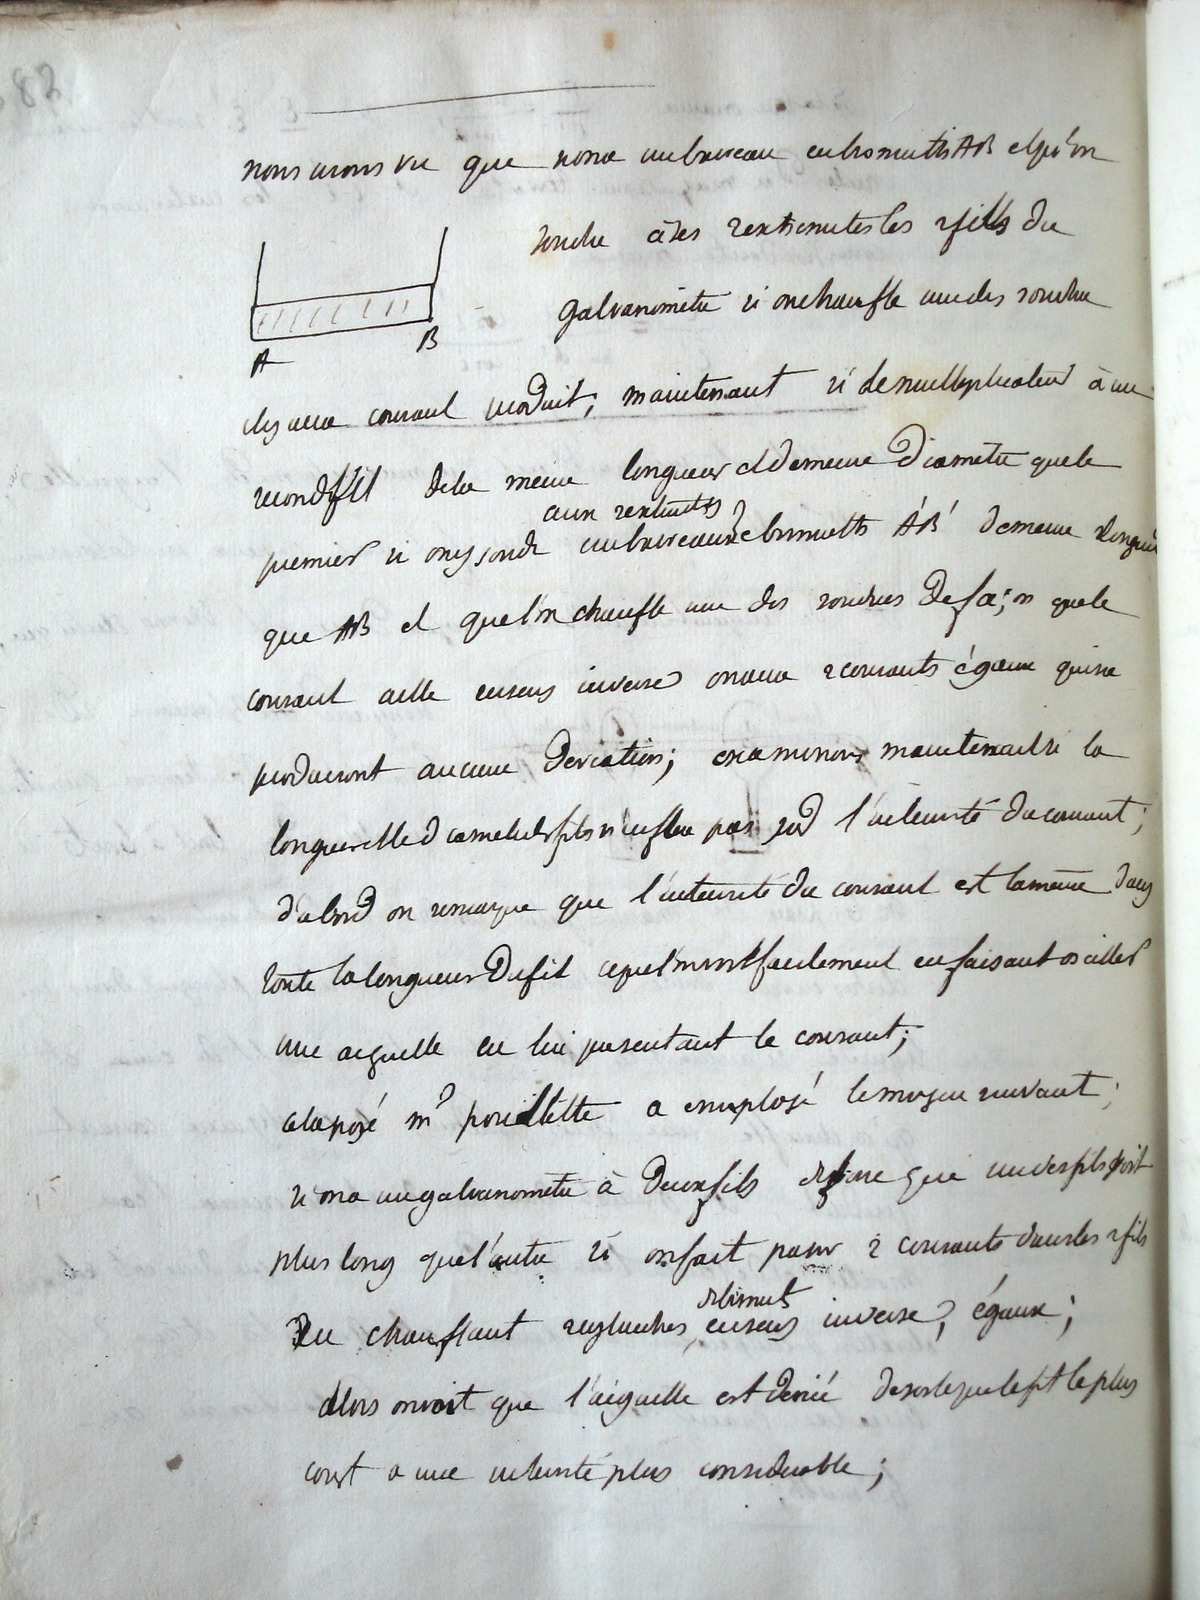 nous avons vu que si on a un barreau en bismuth AB et qu'on
soude à ses 2 extremités les 2 fils du
galvanomètre si on chauffe une des soudures
A
B
il y aura courant produit; maintenant si le multiplicateur à un
second fil de la même longueur et de même diamètre que le
aux extremités
premier si on y soude un barreau de bismuth A'B' de même longueur
que AB et que l'on chauffe une des soudures de façon que le
courant aille en sens inverse on aura 2 courants égaux qui ne
produiront aucune deviation; examinons maintenant si la
longueur et le diametre des fils n'influe pas sur l'intensité du courant;
d'abord on remarque que l'intensité du courant est la même dans
toute la longueur du fil ce que l'on voit facilement en faisant osciller
une aiguille en lui presentant le courant;
cela posé mr pouillette a employé le moyen suivant;
si on a un galvanomètre à deux fils que un des fils soit
plus long que l'autre si on fait passer 2 courants dans les 2 fils
de bismuth
en chauffant en sens inverse, égaux;
alors on voit que l'aiguille est deviée de sorte que le fil le plus
court a une intensité plus considerable;